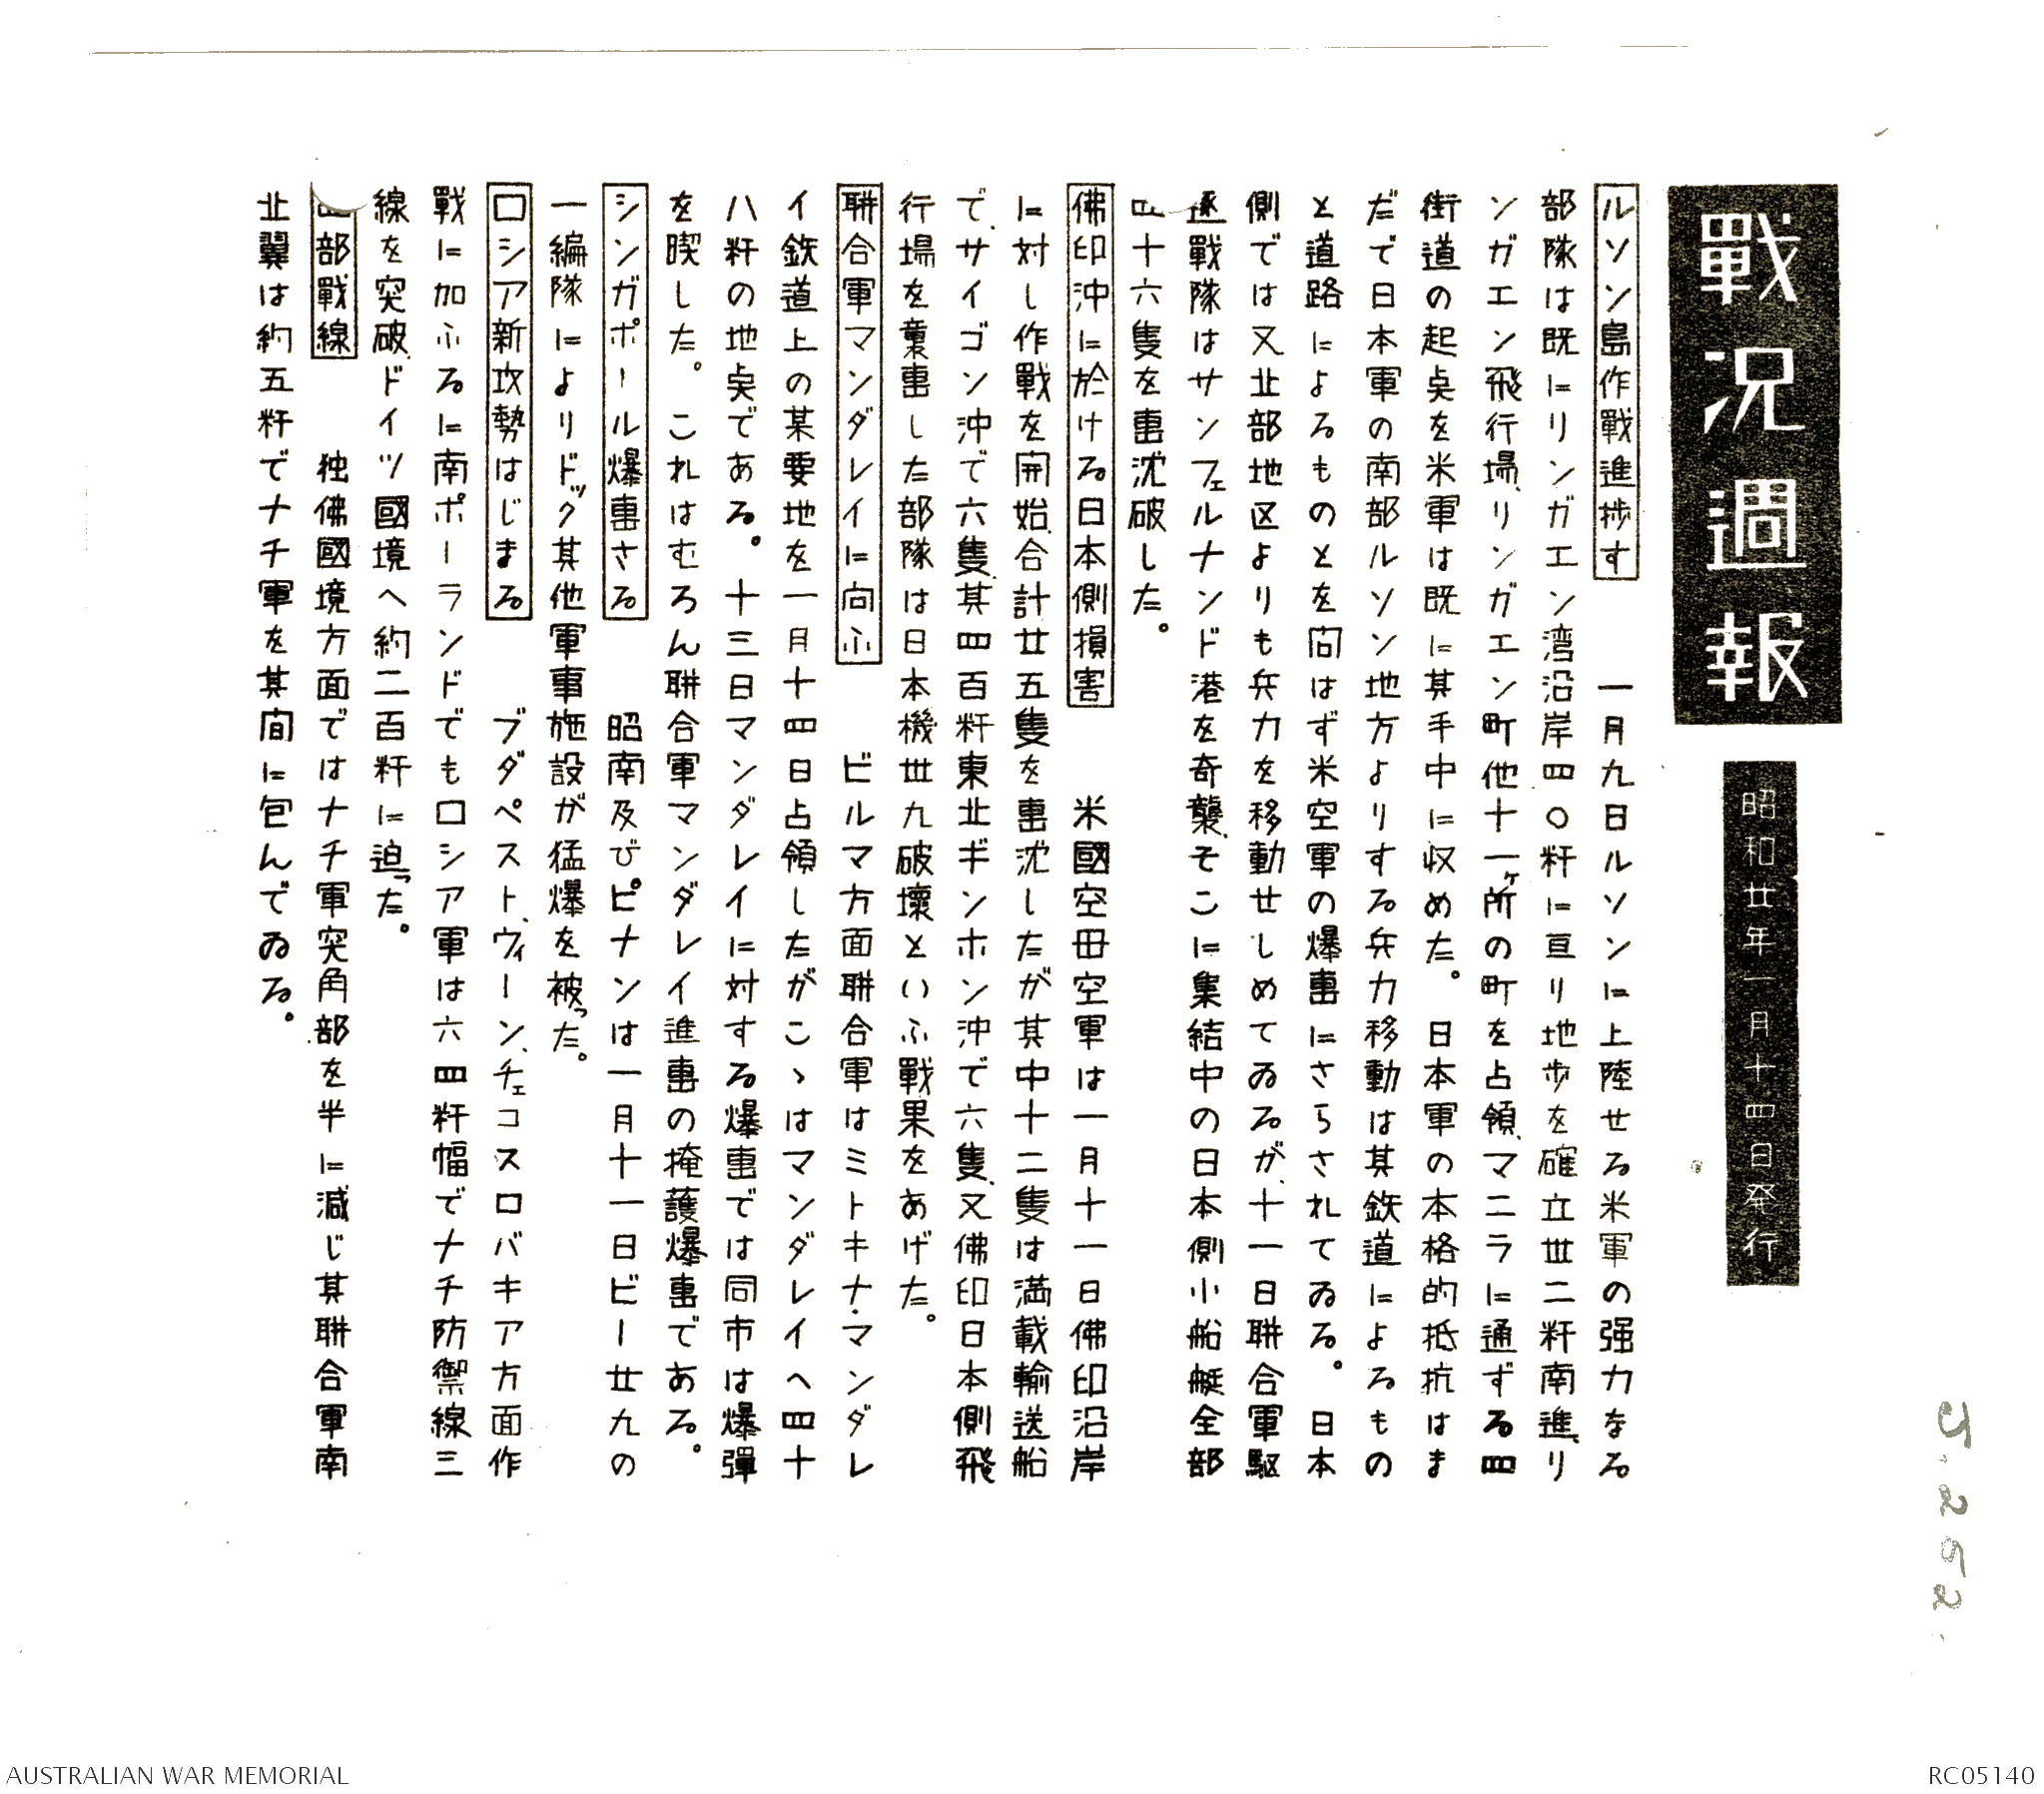 戰況週報
昭和廿年一月十四日発行
ルソン島作戰進捗す　一月九日ルソンに上陸せる米軍の强力なる
部隊は既にリンガエン湾沿岸四〇粁に亘り地歩を確立卅二粁南進、リ
ンガエン飛行場、リンガエン町他十一ヶ所の町を占領、マニラに通ずる四
街道の起奌を米軍は既に其手中に収めた。日本軍の本格的抵抗はま
だで日本軍の南部ルソン地方よりする兵力移動は其鉄道によるもの
と道路によるものとを问はず米空軍の爆撃にさらされてゐる。日本
側では又北部地区よりも兵力を移動せしめてゐるが、十一日聯合軍駆
逐戰隊はサンフェルナンド港を奇襲、そこに集結中の日本側小船艇全部
四十六隻を撃沈破した。
佛印沖に於ける日本側損害　米國空母空軍は一月十一日佛印沿岸
に対し作戰を開始、合計廿五隻を撃沈したが其中十二隻は満載輸送船
で、サイゴン沖で六隻、其四百粁東北ギンホン沖で六隻、又佛印日本側飛
行場を襲撃した部隊は日本機卅九破壊といふ戰果をあげた。
聯合軍マンダレイに向ふ　ビルマ方面聯合軍はミトキナ・マンダレ
イ鉄道上の某要地を一月十四日占領したがこゝはマンダレイへ四十
八粁の地奌である。十三日マンダレイに対する爆撃では同市は爆彈
を喫した。これはむろん聯合軍マンダレイ進撃の掩護爆撃である。
シンガポール爆撃さる　昭南及びピナンは一月十一日ビー廿九の
一編隊によりドック其他軍事施設が猛爆を被った。
ロシア新攻勢はじまる　ブダペスト、ウィーン、チェコスロバキア方面作
戰に加ふるに南ポーランドでもロシア軍は六四粁幅でナチ防禦線三
線を突破、ドイツ國境へ約二百粁に迫った。
西部戰線　独佛國境方面ではナチ軍突角部を半に減じ其聯合軍南
北翼は約五粁でナチ軍を其间に包んでゐる。
AUSTRALIAN WAR MEMORIAL
RC05140